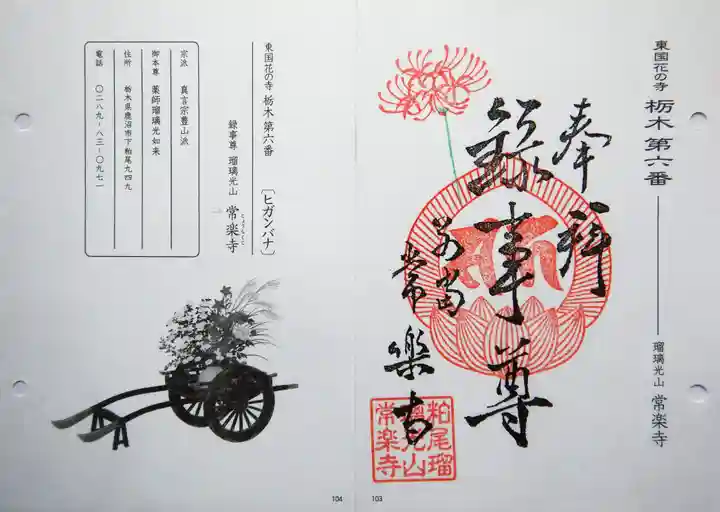 東国花の寺 栃木 第六番 瑠璃光山 常楽寺
奉拝
録事尊
別当
常楽寺
粕尾瑠
璃光山
常楽寺
103
東国花の寺 栃木 第六番 〔ヒガンバナ〕
録事尊 瑠璃光山 常楽寺
じょうらくじ
宗派 真言宗豊山派
御本尊 薬師瑠璃光如来
住所 栃木県鹿沼市下粕尾九四九
電話 〇二八九-八三-〇九七一
104